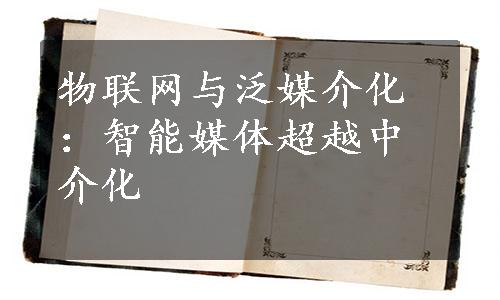 物联网与泛媒介化
：智能媒体超越中
介化